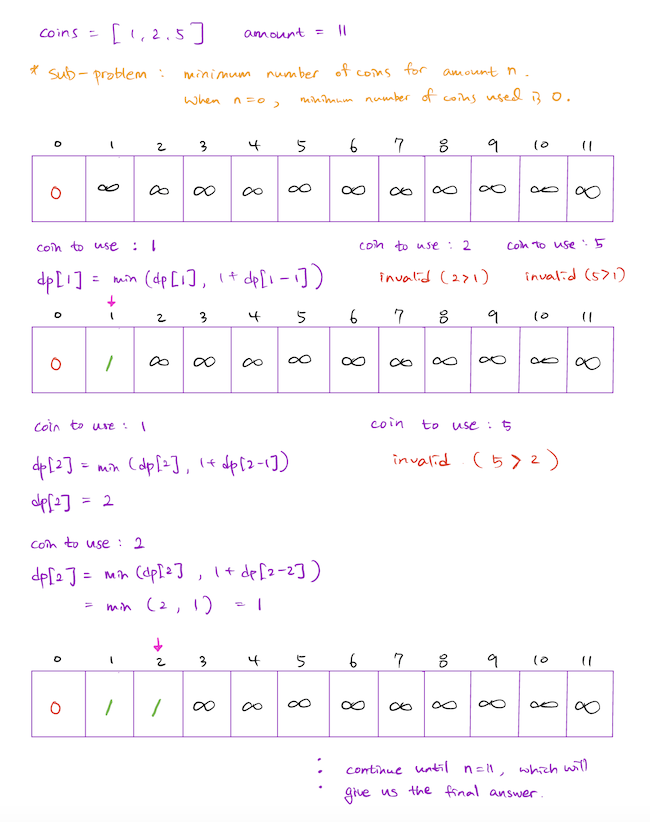 coins = [ 1, 2, 5 ] amount = 11
* sub-problem : minimum number of coins for amount n.
when n=0, minimum number of coins used is 0.
0 1 2 3 4 5 6 7 8 9 10 11
0 ∞ ∞ ∞ ∞ ∞ ∞ ∞ ∞ ∞ ∞ ∞
coin to use : 1 coin to use : 2 coin to use : 5
dp[1] = min (dp[1], 1+dp[1-1]) invalid (2>1) invalid (5>1)
↓
0 1 2 3 4 5 6 7 8 9 10 11
0 1 ∞ ∞ ∞ ∞ ∞ ∞ ∞ ∞ ∞ ∞
coin to use : 1 coin to use : 5
dp[2] = min (dp[2], 1+dp[2-1]) invalid (5 > 2)
dp[2] = 2
coin to use : 2
dp[2] = min (dp[2], 1+dp[2-2])
= min (2, 1) = 1
↓
0 1 2 3 4 5 6 7 8 9 10 11
0 1 1 ∞ ∞ ∞ ∞ ∞ ∞ ∞ ∞ ∞
: continue until n=11, which will
· give us the final answer.